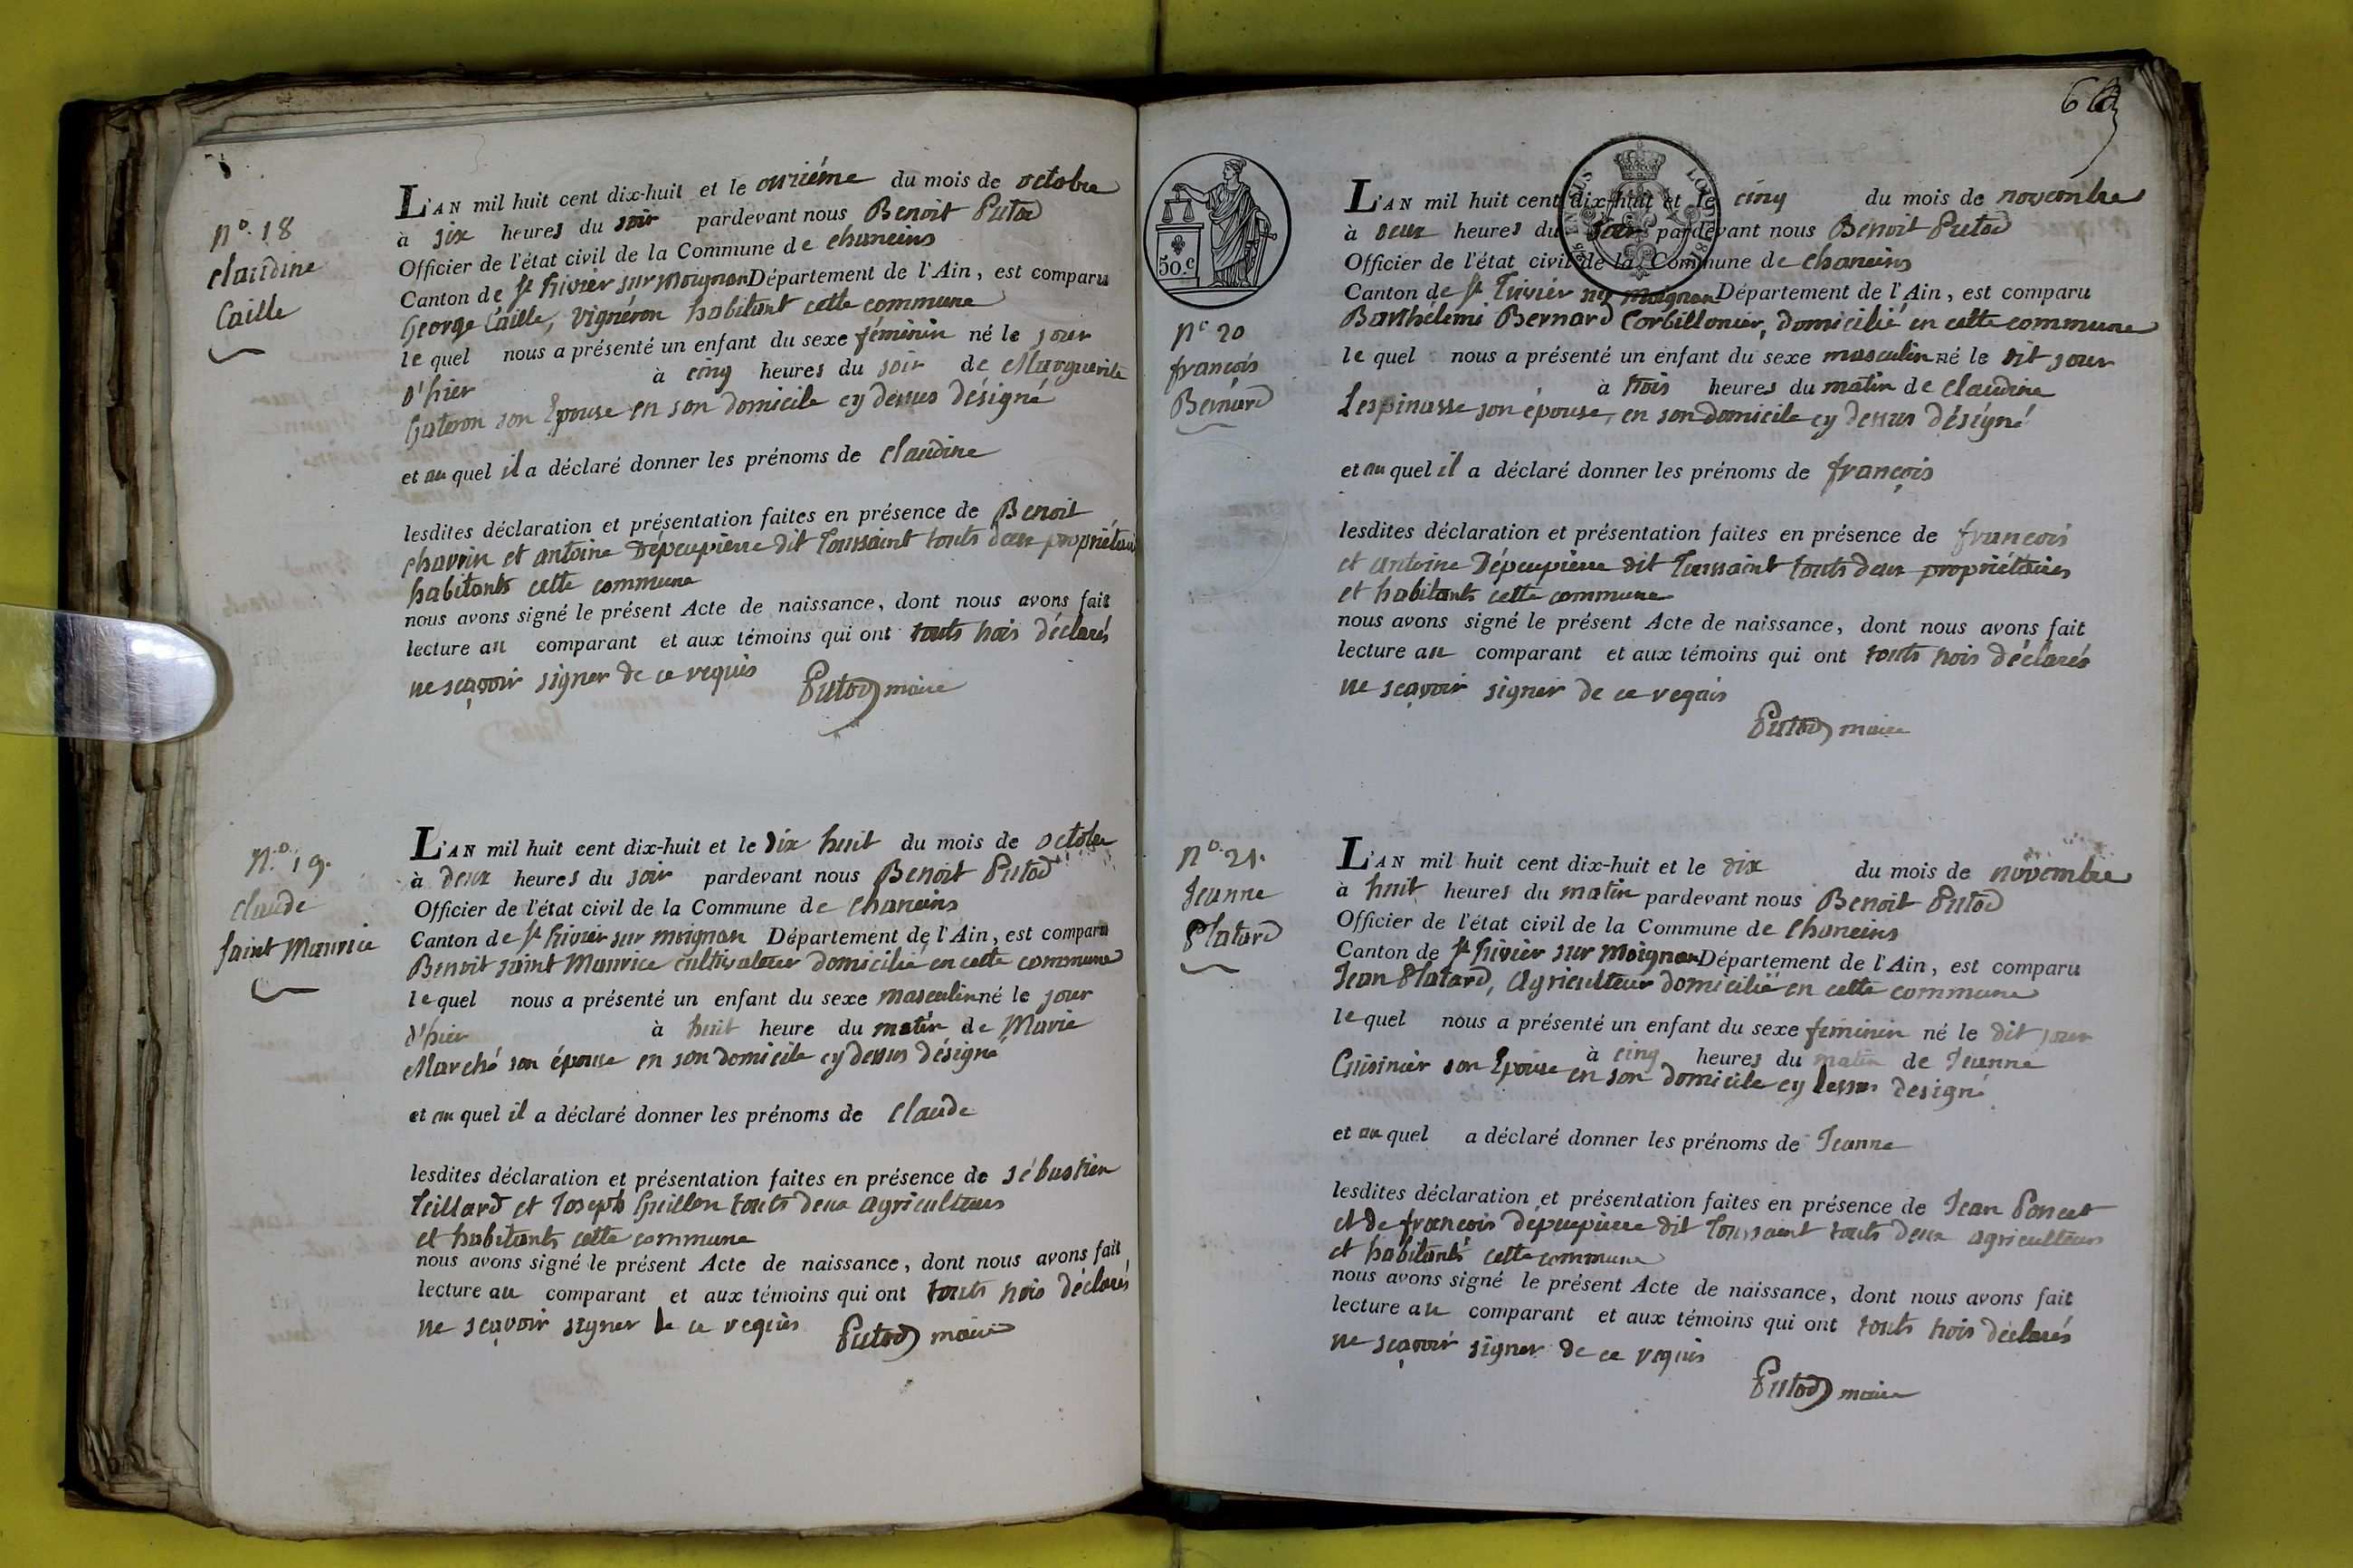 N.o 18
Claudine
Caille
L'AN mil huit cent dix-huit et le onziéme du mois de octobre
à six heures du soir pardevant nous Benoit Putod
Officier de l'état civil de la Commune de chaneins
Canton de St Trivier sur moignan Département de l'Ain, est comparu
George Caille, vignéron habitant cette commune
le quel nous a présenté un enfant du sexe féminin né le jour
d'hier à cinq heures du soir de Marguerite
Gateron son Epouse en son domicile cy dessus désigné
et au quel il a déclaré donner les prénoms de claudine
lesdites déclaration et présentation faites en présence de Benoit
et antoine Dépeupierre dit Toussaint touts deux propriétaires
habitants cette commune
nous avons signé le présent Acte de naissance, dont nous avons fait
lecture au comparant et aux témoins qui ont touts trois déclarés
ne sçavoir signer de ce requis Putod maire
N.o 19.
Claude
Saint Maurice
L'AN mil huit cent dix-huit et le dix huit du mois de octobre
à deux heures du soir pardevant nous Benoit Putod
Officier de l'état civil de la Commune de chaneins
Canton de St Trivier sur moignan Département de l'Ain, est comparu
Benoit saint Maurice cultivateur domicilié en cette commune
le quel nous a présenté un enfant du sexe masculin né le jour
d'hier à huit heure du matin de Marie
Marché son épouse en son domicile cy dessus désigné
et au quel il a déclaré donner les prénoms de claude
lesdites déclaration et présentation faites en présence de sébastien
Teillard et Joseph Guillon touts deux agriculteurs
et habitants cette commune
nous avons signé le présent Acte de naissance, dont nous avons fait
lecture au comparant et aux témoins qui ont touts trois déclarés
ne sçavoir signer de ce requis Putod maire
50.c
No 20
françois
Bernard
L'AN mil huit cent dix-huit et le cinq du mois de novembre
à deux heures du soir pardevant nous Benoit Putod
Officier de l'état civil de la Commune de chaneins
Canton de St Trivier sur moignan Département de l'Ain, est comparu
Barthélemi Bernard Corbillonier, domicilié en cette commune
le quel nous a présenté un enfant du sexe masculin né le dit jour
à trois heures du matin de claudine
Lespinasse son épouse, en son domicile cy dessus désigné
et au quel il a déclaré donner les prénoms de françois
lesdites déclaration et présentation faites en présence de françois
et antoine Dépeupierre dit Toussaint touts deux propriétaires
et habitants cette commune
nous avons signé le présent Acte de naissance, dont nous avons fait
lecture au comparant et aux témoins qui ont touts trois déclarés
ne sçavoir signer de ce requis
Putod maire
No 21.
Jeanne
Platard
L'AN mil huit cent dix-huit et le dix du mois de novembre
à huit heures du matin pardevant nous Benoit Putod
Officier de l'état civil de la Commune de chaneins
Canton de St Trivier sur Moignan Département de l'Ain, est comparu
Jean Platard, Agriculteur domicilié en cette commune
le quel nous a présenté un enfant du sexe féminin né le dit jour
à cinq heures du matin de Jeanne
Cuisinier son Epouse en son domicile cy dessus designé
et au quel a déclaré donner les prénoms de Jeanne
lesdites déclaration et présentation faites en présence de Jean Poncet
et de françois dépeupierre dit Toussaint touts deux agriculteurs
et habitants cette commune
nous avons signé le présent Acte de naissance, dont nous avons fait
lecture au comparant et aux témoins qui ont touts trois déclarés
ne sçavoir signer de ce requis
Putod maire